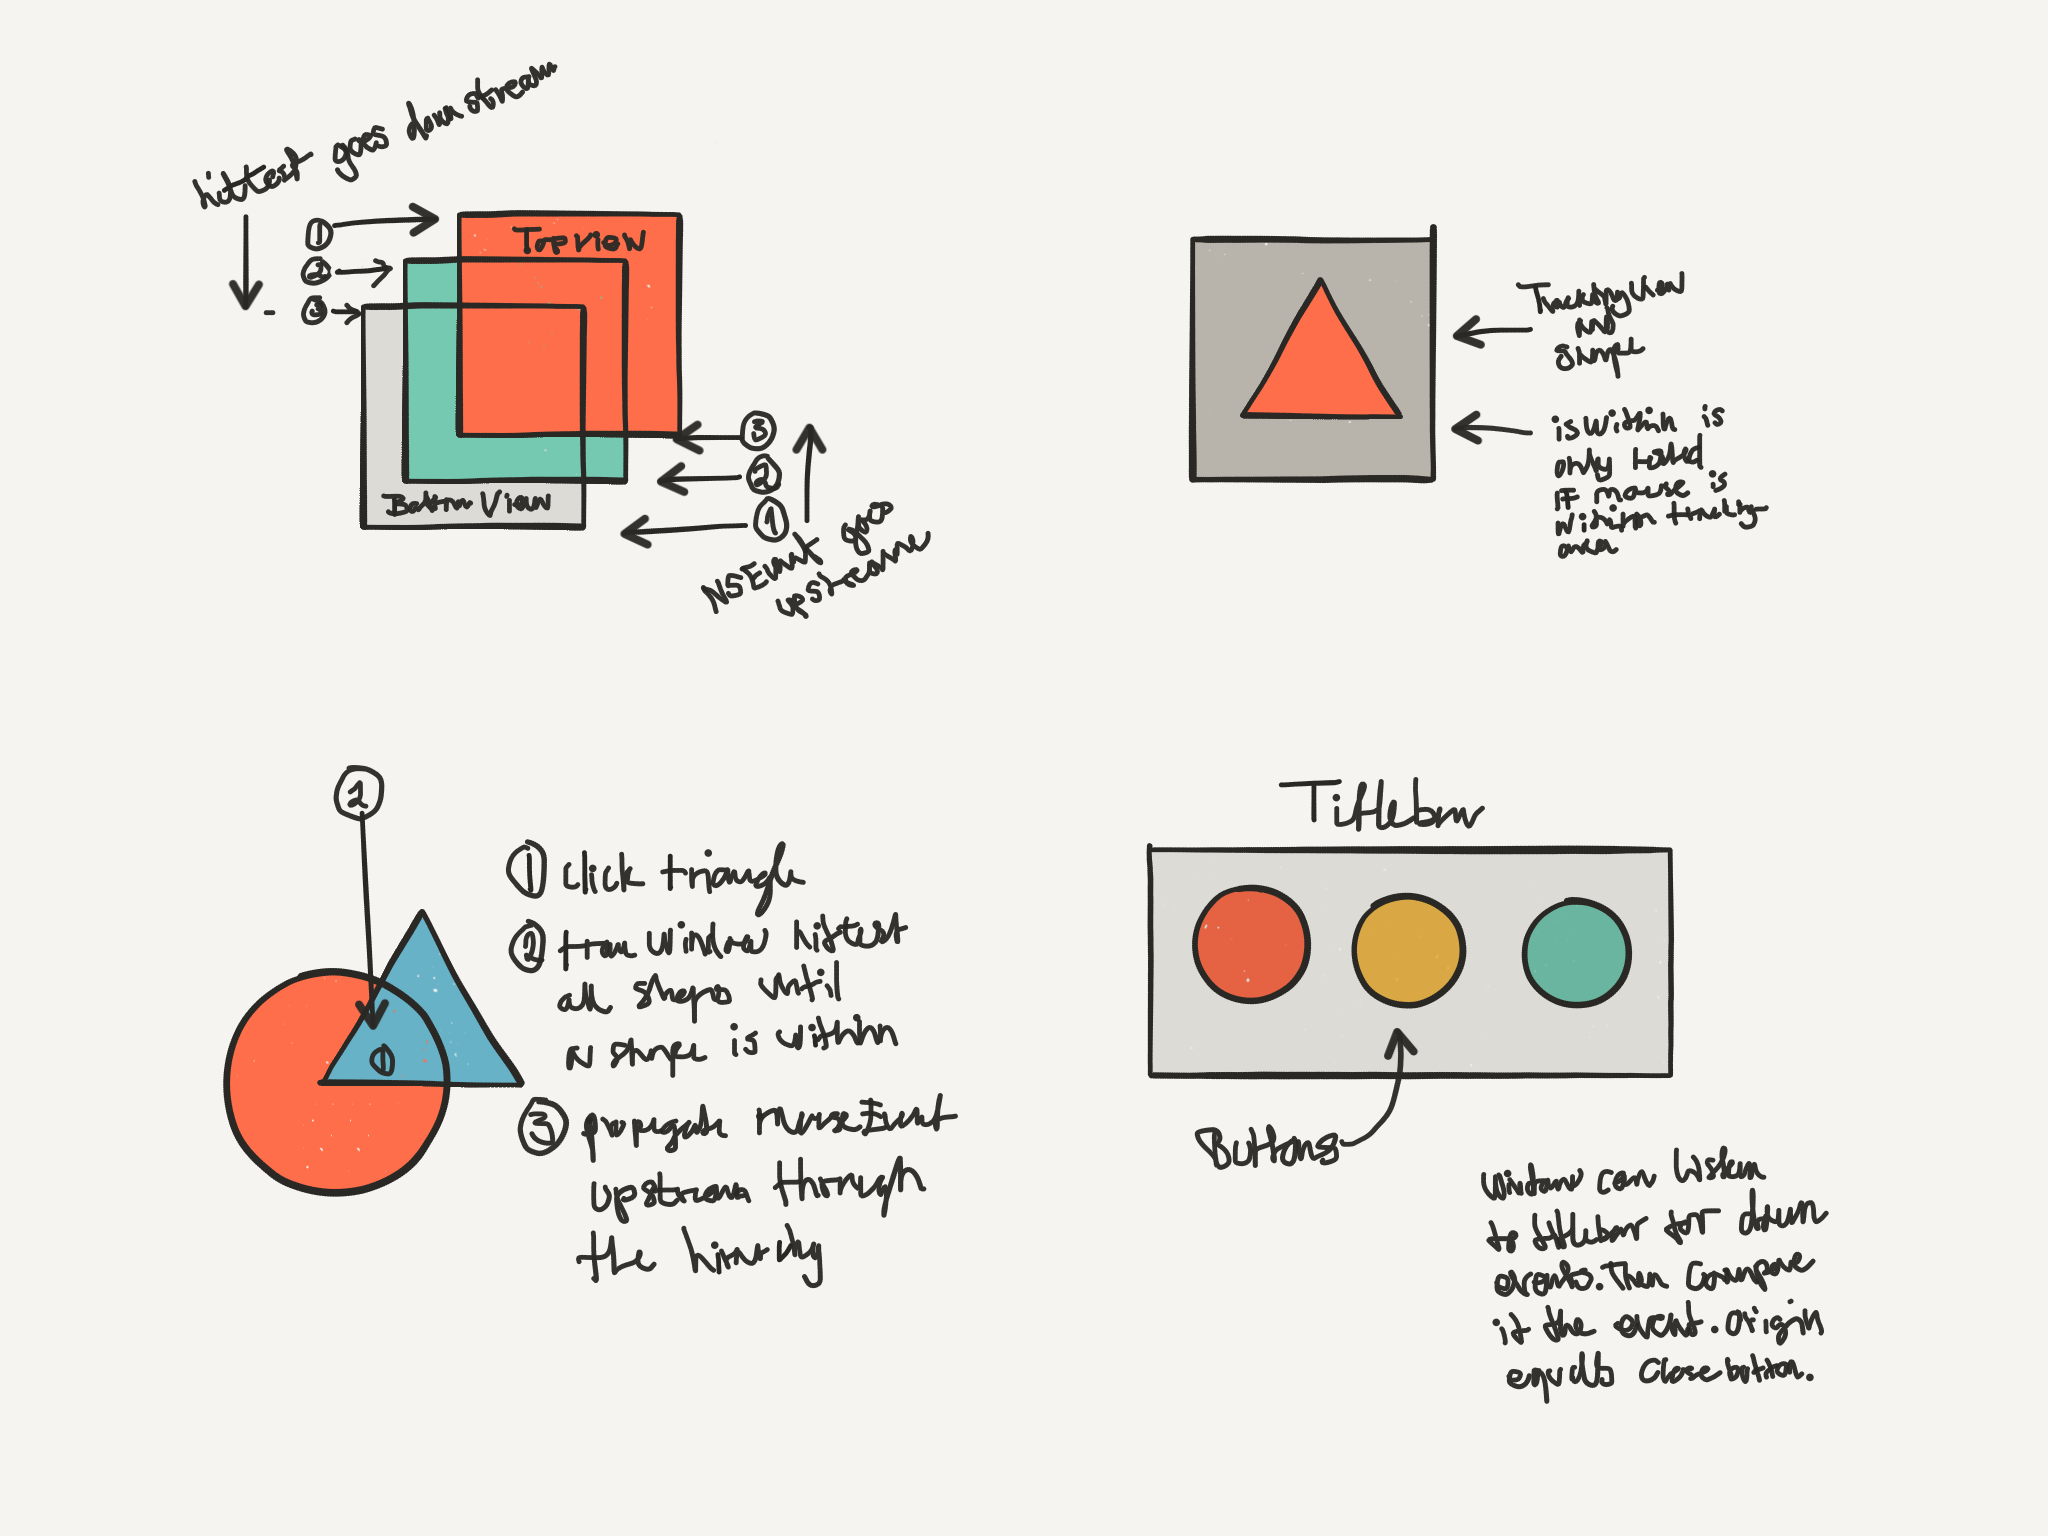 hittest goes downstream
1
2
3
Topview
Bottom View
3
2
1
NSEvent goes
upstreame
Tracking View
and
shape
is within is
only tested
if mouse is
within tracking
area
2
1
1 click triangle
2 from window hittest
all shaps until
a shape is within
3 propegate mouseEvent
upstream through
the hirarchy
Titlebar
Buttons
window can listen
to titlebar for down
events. Then Compare
if the event.origin
equals closebutton.